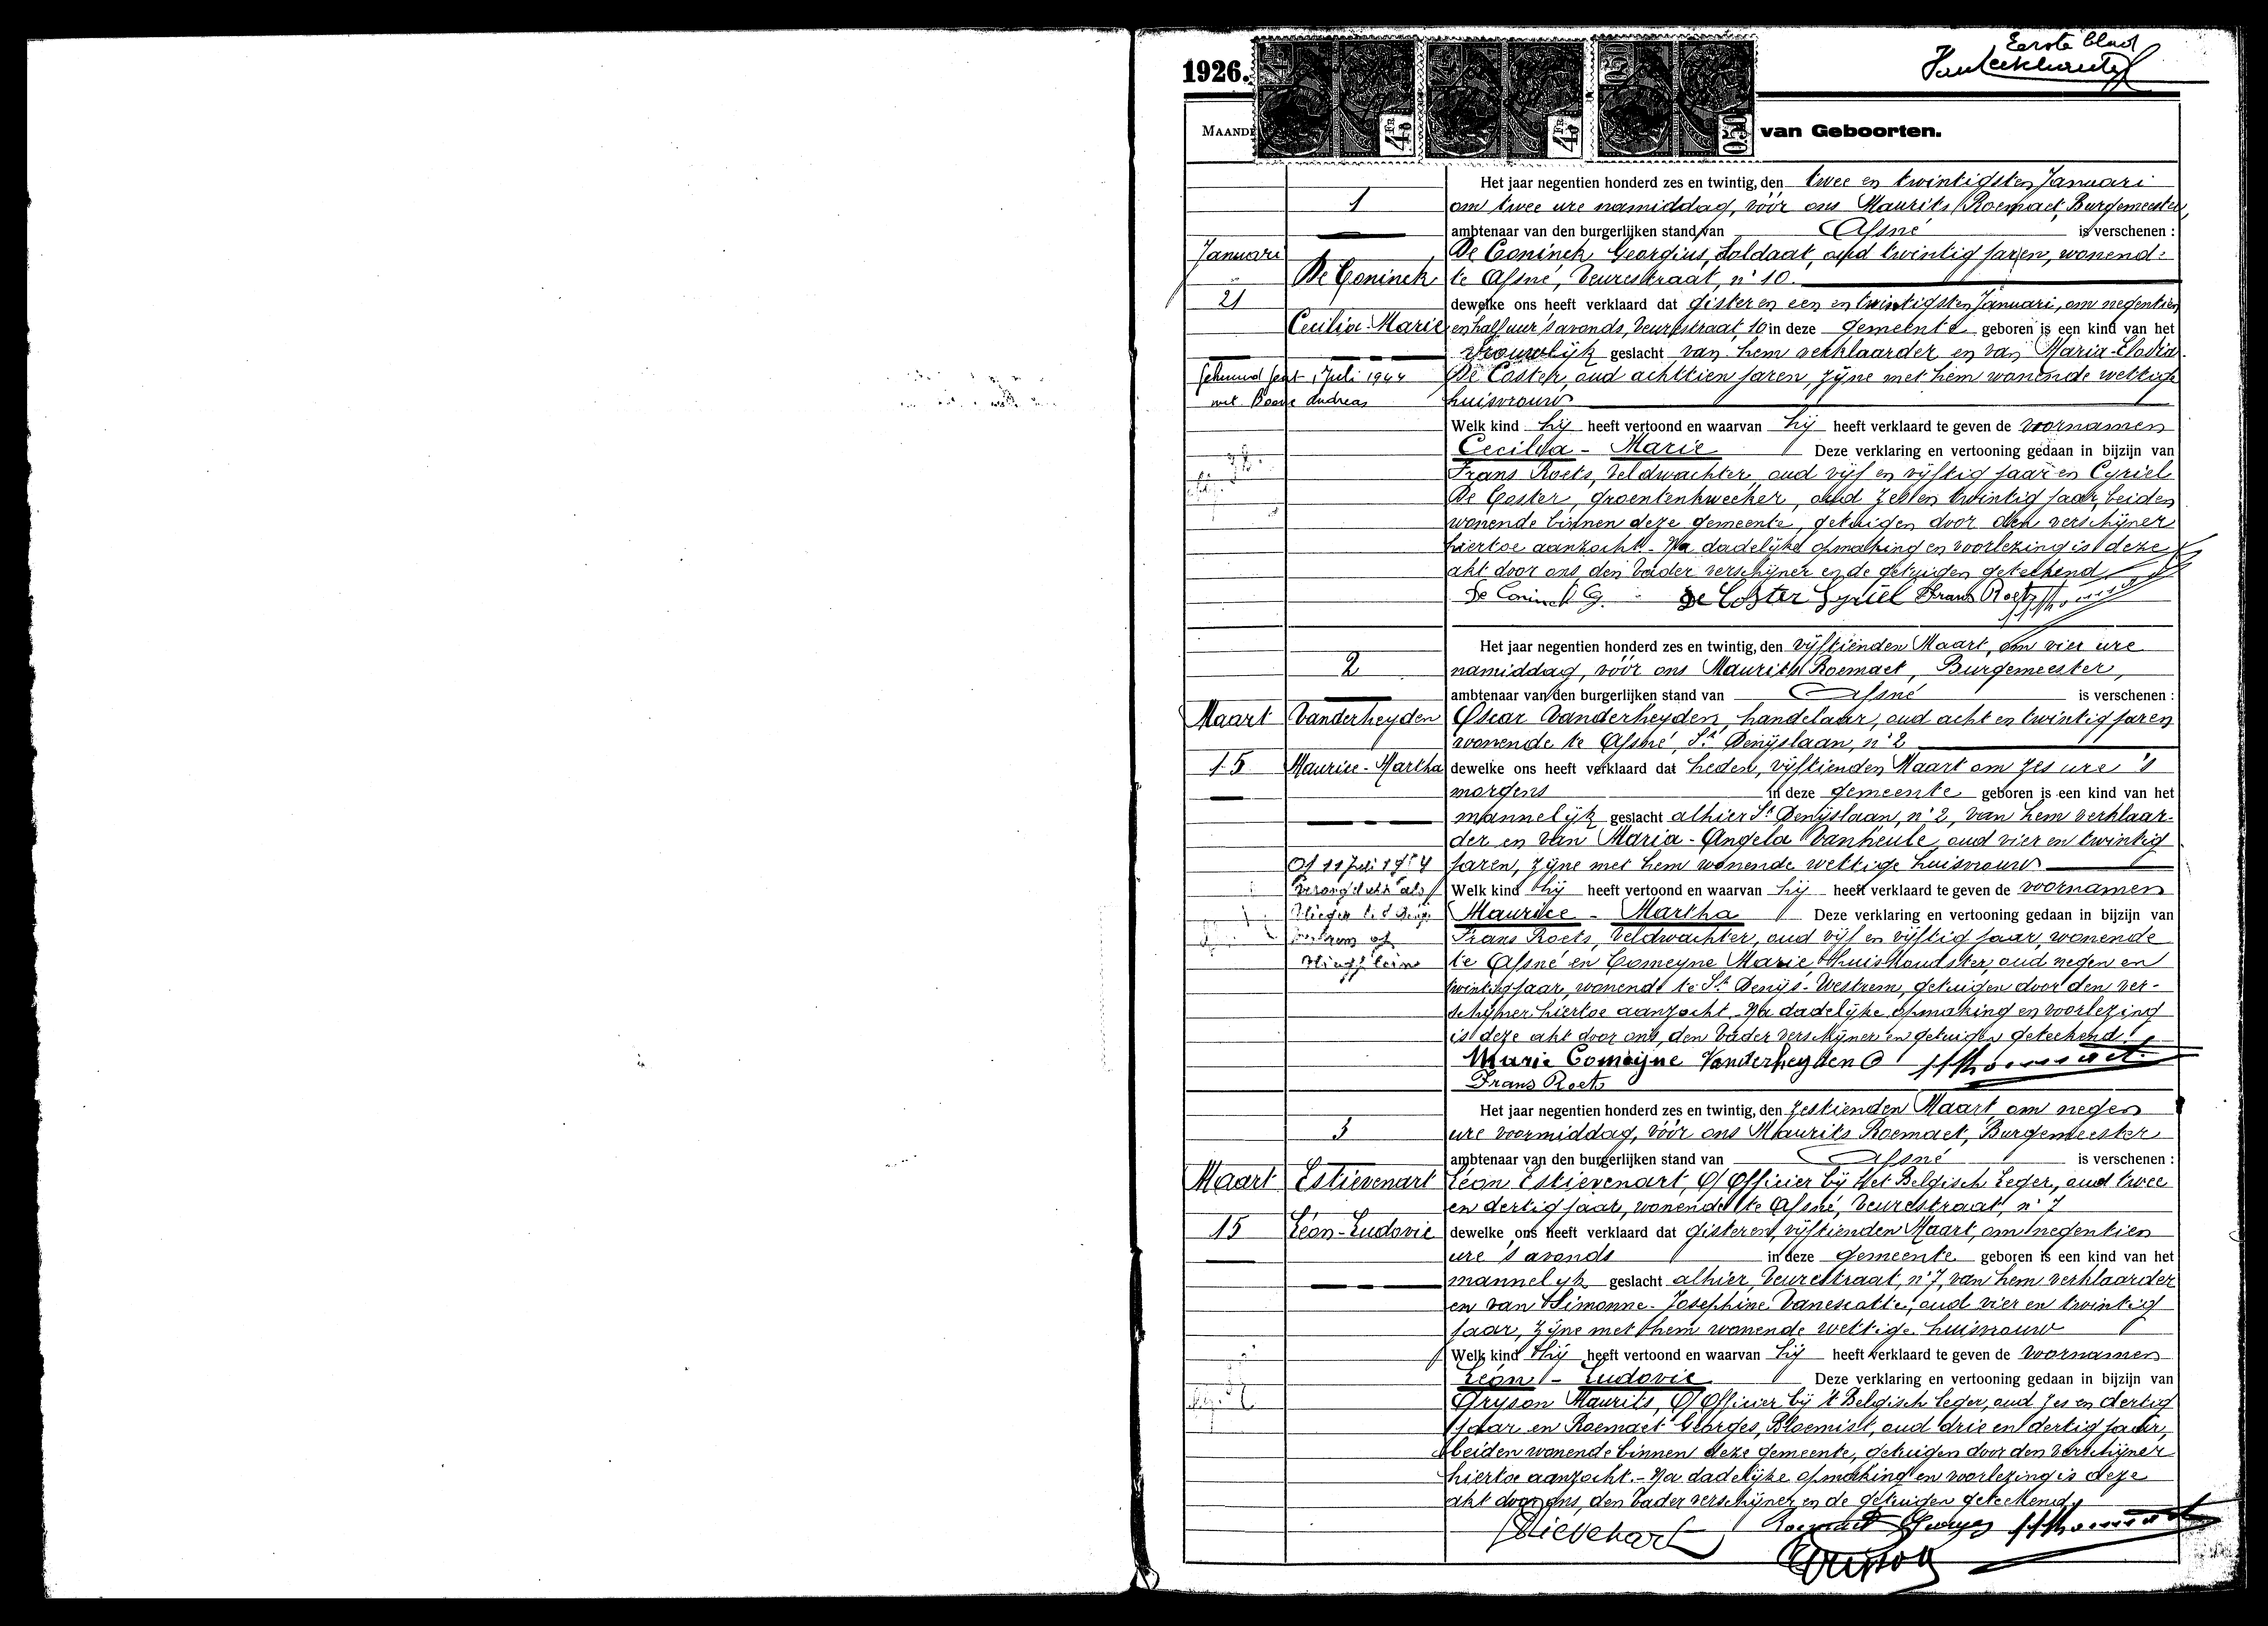 Eerste blad
1926.
4 Fr
4 Fr
0.50
van Geboorten.
Het jaar negentien honderd zes en twintig, den twee en twintigsten Januari
1
om twee ure namiddag, vóór ons Maurits Roemaet, Burgemeester,
ambtenaar van den burgerlijken stand van Afsné is verschenen :
Januari
De Coninck Georgius, soldaat, oud twintig jaren, wonend:
De Coninck
te Afsné, Veurestraat, n° 10.
21
dewelke ons heeft verklaard dat gisteren een en twintigsten Januari, om negentien
Cecilia-Marie
en half uur 's avonds, Veurestraat, 10 in deze gemeente geboren is een kind van het
vrouwelijk geslacht van hem verklaarder en van Maria-Elodia
Juli 1944
De Coster, oud achttien jaren, zijne met hem wonende wettige
met Andreas
huisvrouw
Welk kind hij heeft vertoond en waarvan hij heeft verklaard te geven de voornamen
Cecilia - Marie Deze verklaring en vertooning gedaan in bijzijn van
Frans Roets, Veldwachter, oud vijf en vijftig jaar en Cyriel
De Coster, groentenkweeker, oud zes en twintig jaar, beiden
wonende binnen deze gemeente, getuigen door den verschijner
hiertoe aanzocht. - Na dadelijke opmaking en voorlezing is deze
akt door ons, den Vader verschijner en de getuigen geteekend
De Coninck G. De Coster Cyriel Frans Roets
Het jaar negentien honderd zes en twintig, den vijftienden Maart, om vier ure
2
namiddag, vóór ons Maurits Roemaet, Burgemeester,
ambtenaar van den burgerlijken stand van Afsné is verschenen :
Maart
Vanderheyden
Oscar Vanderheyden, handelaar, oud acht en twintig jaren
wonende te Afsné, St Denijslaan, n° 2
15
Maurice-Martha
dewelke ons heeft verklaard dat heden, vijftienden Maart om zes ure 's
morgens in deze gemeente geboren is een kind van het
mannelijk geslacht alhier St Denijslaan, n° 2, van hem verklaar-
der en van Maria-Angela Vanheule, oud vier en twintig
Op 11 Juli 1954
jaren, zijne met hem wonende wettige huisvrouw
Verongelukt als
Welk kind hij heeft vertoond en waarvan hij heeft verklaard te geven de voornamen
Vlieger
Maurice - Martha Deze verklaring en vertooning gedaan in bijzijn van
Frans Roets, Veldwachter, oud vijf en vijftig jaar, wonende
Vliegplein
te Afsné en Comeyne Marie Huishoudster, oud negen en
twintig jaar, wonende te St Denijs-Westrem, getuigen door den ver-
schijner hiertoe aanzocht. - Na dadelijke opmaking en voorlezing
is deze akt door ons, den Vader verschijner en getuigen geteekend.
Marie Comeyne Vanderheyden O
Frans Roets
Het jaar negentien honderd zes en twintig, den zestienden Maart, om negen
3
ure voormiddag, vóór ons Maurits Roemaet, Burgemeester
ambtenaar van den burgerlijken stand van Afsné is verschenen :
Maart
Estievenart
Léon Estievenart, O/Officier bij Het Belgisch Leger, oud twee
en dertig jaar, wonende te Afsné, Veurestraat, n° 7
15
Léon-Ludovic
dewelke ons heeft verklaard dat gisteren, vijftienden Maart, om negentien
ure 's avonds in deze gemeente geboren is een kind van het
mannelijk geslacht alhier, Veurestraat, n° 7, van hem verklaarder
en van Simonne-Josephine Vanescotte, oud vier en twintig
jaar, zijne met hem wonende wettige huisvrouw
Welk kind hij heeft vertoond en waarvan hij heeft verklaard te geven de voornamen
Léon - Ludovic Deze verklaring en vertooning gedaan in bijzijn van
Gryson Maurits, O/Officier bij 't Belgisch Leger, oud zes en dertig
jaar en Roemaet Georges, Bloemist, oud drie en dertig jaar,
beiden wonende binnen deze gemeente, getuigen door den verschijner
hiertoe aanzocht. - Na dadelijke opmaking en voorlezing is deze
akt door ons, den Vader verschijner en de getuigen geteekend.
Roemaet Georges